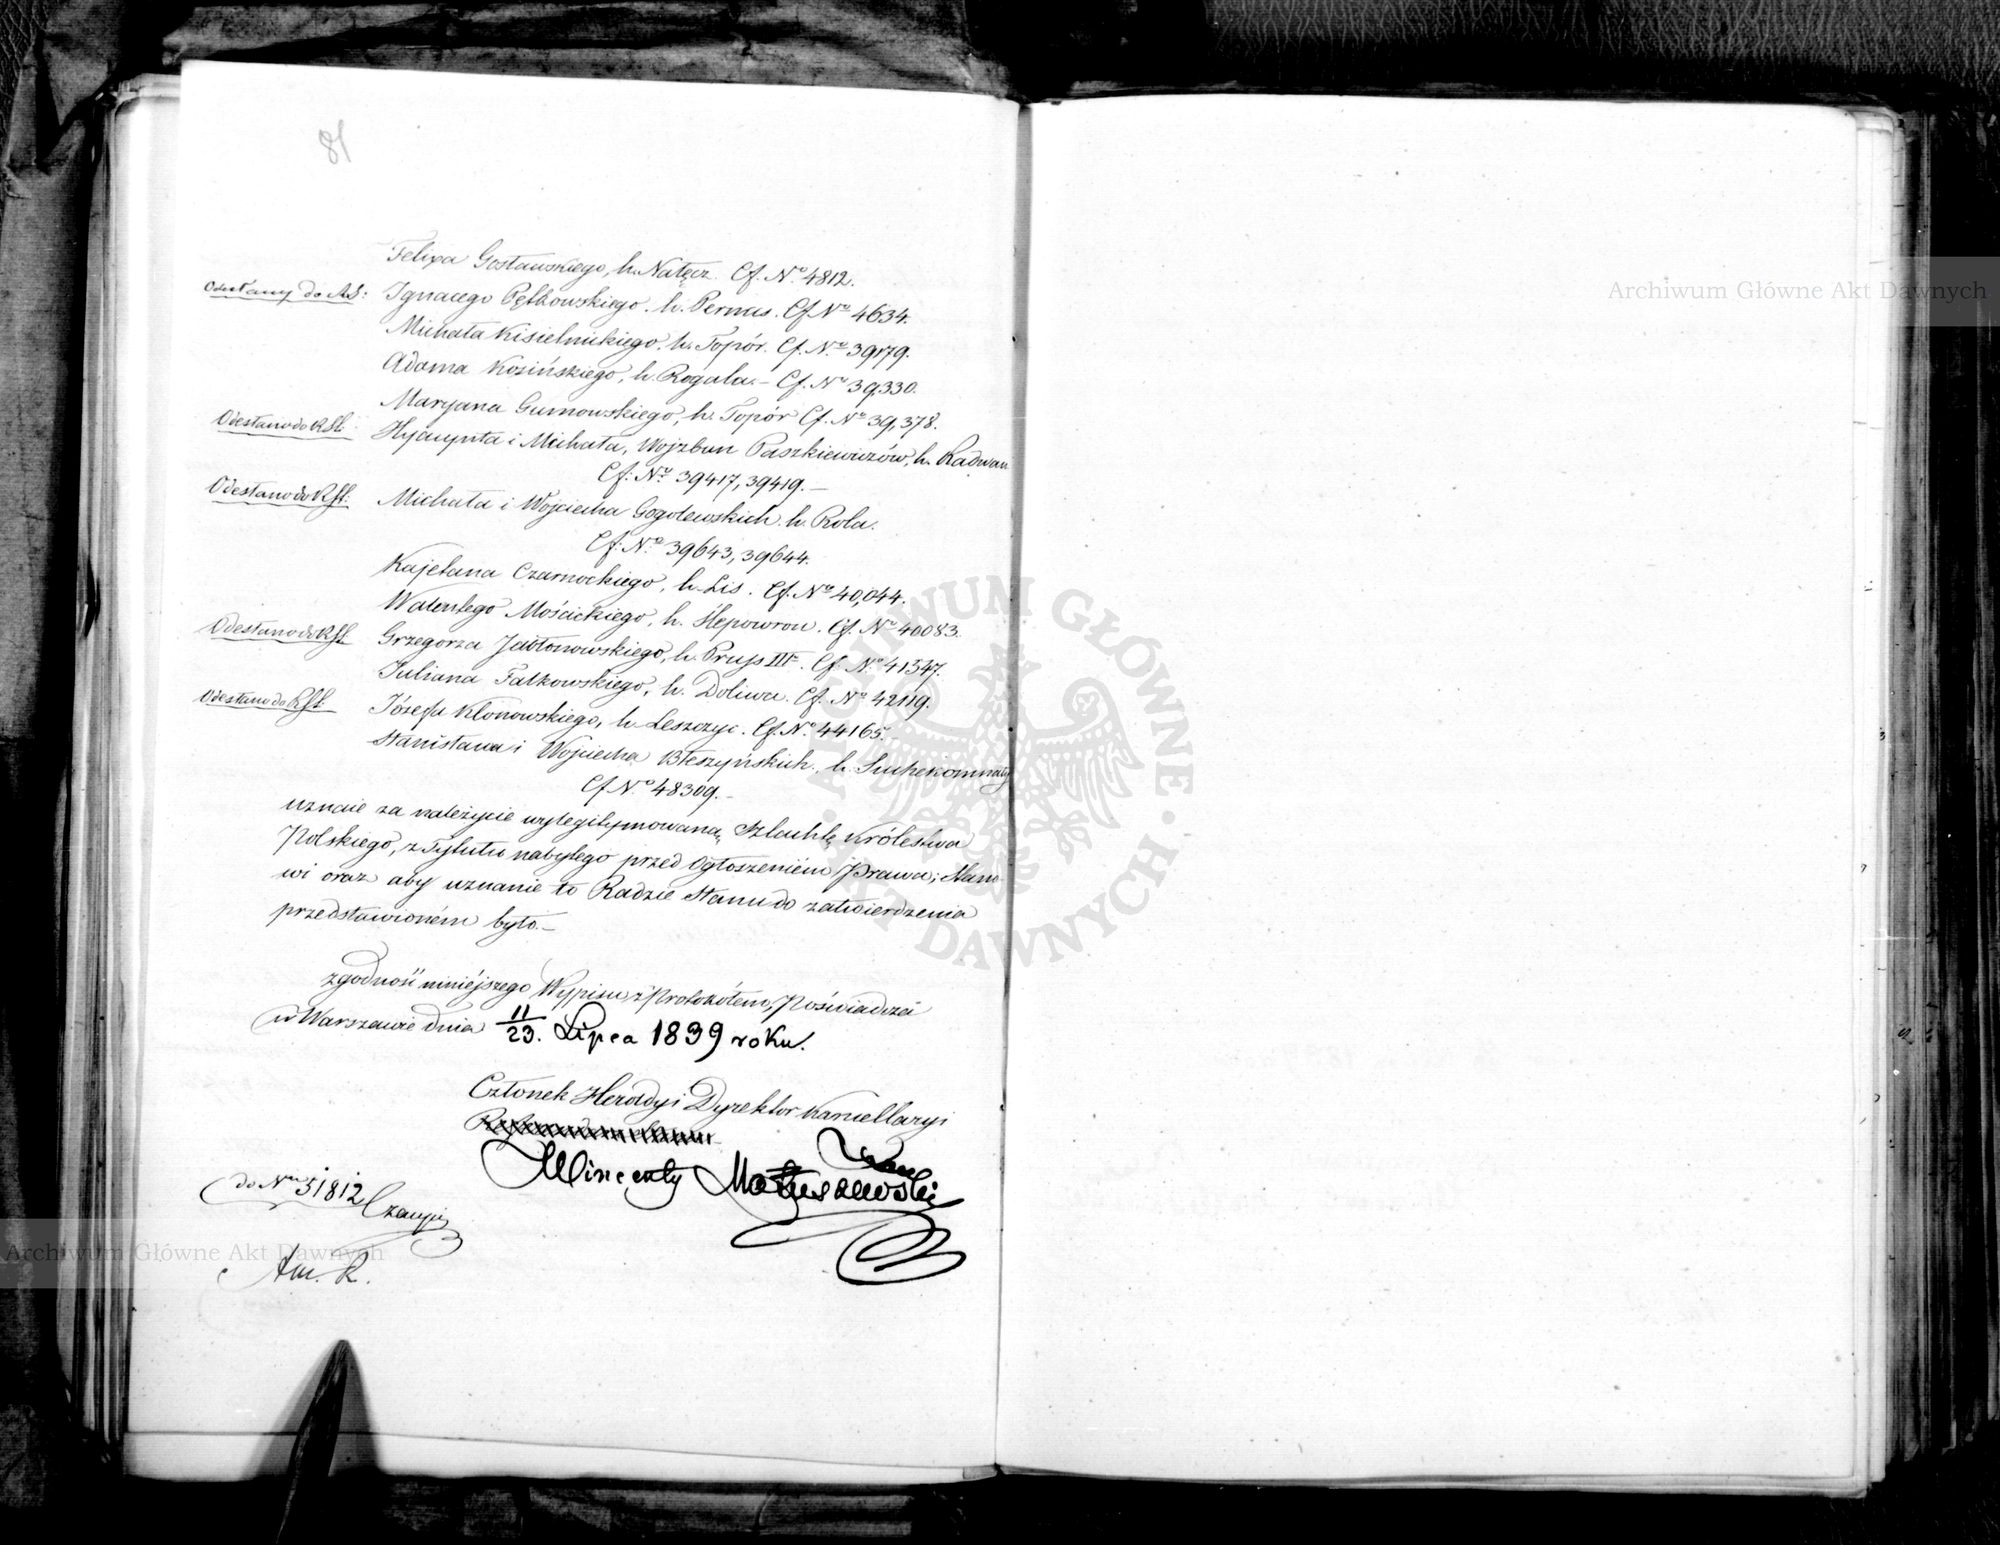 81
Felixa Gostawskiego, h. Nałęcz. Cf. No 4812.
Odesłany do AS: Ignacego Pętkowskiego. h. Pernus. Cf No 4634.
Michała Kisielnickiego. h. Topór. Cf. No 39179.
Adama Kozińskiego, h. Rogala. – Cf. No 39330.
Maryana Gumowskiego, h. Topór Cf. No 39,378.
Odesłano do RSt: Hyacynta i Michała, Wojzbun Paszkiewiczów, h. Radwan
Cf: No 39417, 39419. –
Odesłano do RSt: Michała i Wojciecha Gogolewskich. h. Rola.
Cf: No 39643, 39644.
Kajetana Czarnockiego, h. Lis. Cf. No 40,044.
Walentego Mościckiego, h. Ślepowron. Cf. No 40083.
Odesłano do RSt Grzegorza Jabłonowskiego, h. Pruss III. Cf. No 41347.
Juliana Falkowskiego, h. Doliwa. Cf. No 42119.
Odesłano do RSt: Józefa Klonowskiego, h. Leszczyc. Cf. No 44165. –
Stanisława i Wojciecha Błeszyńskich. h. Suchekomnaty
Cf No 48309. –
uznaie za należycie wylegitymowaną Szlachtę Królestwa
Polskiego, z Tytułu nabytego przed Ogłoszeniem Prawa;
wi oraz aby uznanie to Radzie Stanu do zatwierdzenia
przedstawioném było. –
Zgodność niniejszego Wypisu z Protokółem, Poświadcza
w Warszawie dnia 11/23. Lipca 1839 roku.
Członek Heroldyi Dyrektor Kancellaryi
Wincenty Matuszewski
do Nru 51812
Archiwum Główne Akt Dawnych
Archiwum Główne Akt Dawnych
ARCHIWUM GŁÓWNE AKT DAWNYCH